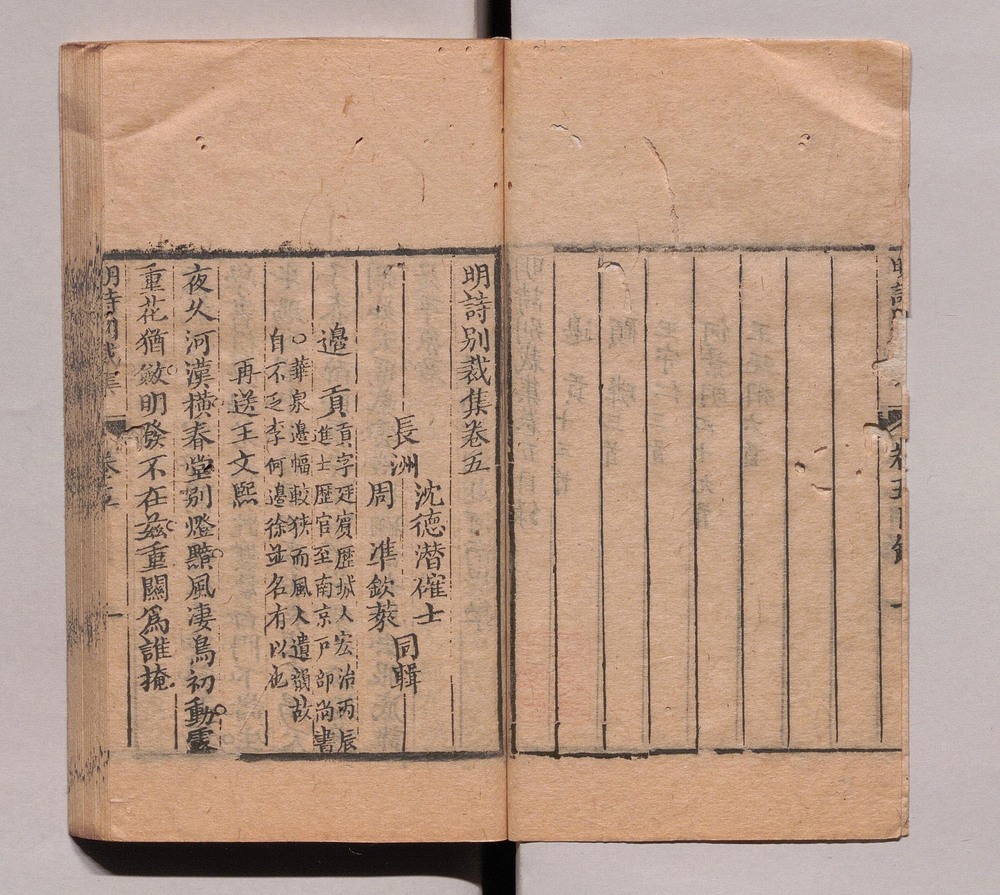 卷五目錄 一
明詩別裁集卷五
長洲 沈德潛確士
周準欽萊 同輯
邊貢 貢字廷實歷城人宏治丙辰
進士歷官至南京戶部尚書
○華泉邊幅較狹而風人遺韻故
自不乏李何邊徐並名有以也
再送王文熙
夜久河漢橫春堂別燈黯風淒鳥初動露
重花猶斂明發不在茲重關爲誰掩
明詩別裁集 卷五 一